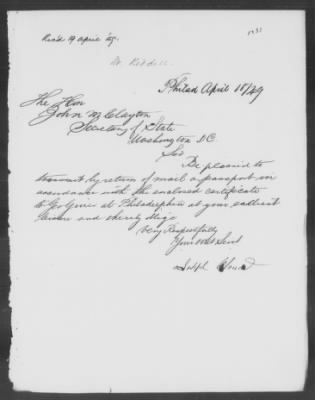 Rec'd 19 April '49.
Philad April 18/49
The Hon
John M Clayton
Secretary of State
Washington D.C.
Sir
Be pleased to
transmit by return of mail a passport in
accordance with the enclosed certificate
to at Philadelphia at your earliest
and thereby oblige
Very Respectfully
Your Obt Servt
Joseph